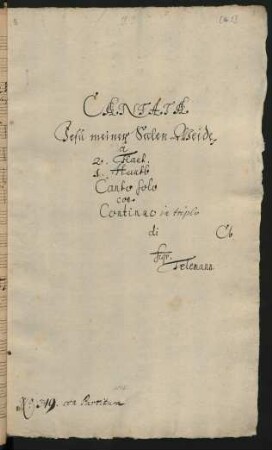 CANTATA
Jesu meiner Seelen Weide
a
2. Flaut.
1. Hautb
Canto Solo
con
Continuo in triplo
di
Cb
Sigr.
Telemann
No: 349. cu Partitura